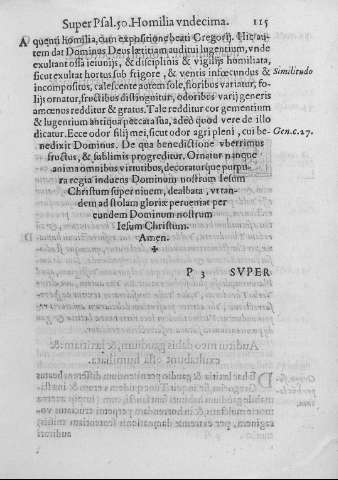 Super Psal.50. Homilia vndecima. 115
A quenti homilia, cum expositione beati Gregorij. Hic autem dat Dominus Deus lætitiam auditui lugentium, vnde
exultant ossa ieiunijs, & disciplinis & vigilijs humiliata,
sicut exultat hortus sub frigore, & ventis infœcundus & Similitudo
incompositus, calescente autem sole, floribus variatur, folijs ornatur, fructibus distinguitur, odoribus varij generis
amœnos redditur & gratus. Tale redditur cor gementium
& lugentium antiqua peccata sua, adeò quod vere de illo
dicatur. Ecce odor filij mei, sicut odor agri pleni, cui be- Gen.c.27.
nedixit Dominus. De qua benedictione vberrimus
fructus, & sublimis progreditur. Ornatur nanque
anima omnibus virtutibus, decoraturque purpu-
ra regia induens Dominum nostrum Iesum
Christum super niuem, dealbata, vt tan-
dem ad stolam gloriæ perueniat per
eundem Dominum nostrum
Iesum Christum.
Amen.
P 3 SVPER